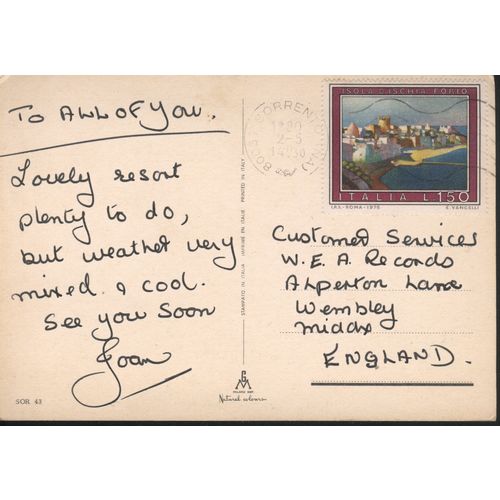 TO ALL OF YOU.
Lovely resort
plenty to do,
but weather very
mixed & cool.
See you Soon
Joan
SOR 43
STAMPATO IN ITALIA IMPRIMÉ EN ITALIE PRINTED IN ITALY
MILANO
Natural colours
ISOLA D'ISCHIA FORIO
ITALIA L.150
I.P.S.-ROMA-1976 E. VANGELLI
Customer Services
W.E.A Records
Alperton Lane
Wembley
Middx
ENGLAND.